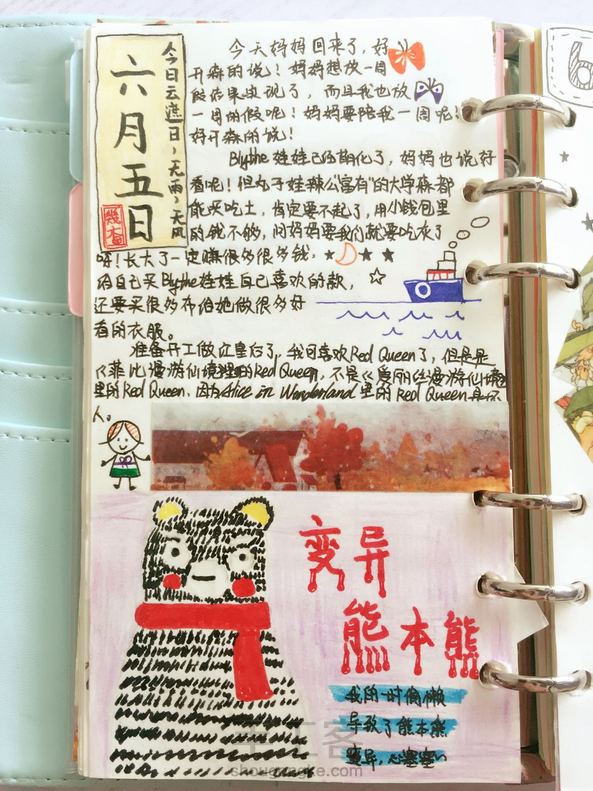 六月五日
今日云遮日,无雨,大风
今天妈妈回来了,好
开森的说!妈妈想放一周
假后果实现了,而且我也放
一周的假呢!妈妈要陪我一周呢!
好开森的说!
Blythe娃娃已经萌化了,妈妈也说好
看呢!但丸子娃辣么"富有"的大学森都
能买吃土,肯定要不起了,用小钱包里
的钱不够,问妈妈要我们就要吃衣了
呀!长大了一定赚很多很多钱,
给自己买Blythe娃娃自己喜欢的款,
还要买很多布给她做很多好
看的衣服。
准备开工做红皇后了,我可喜欢Red Queen了,但是是
《菲比漫游仙境》里的Red Queen,不是《爱丽丝漫游仙境》
里的Red Queen,因为Alice in Wonderland里的Red Queen是坏
人。
变异
熊本熊
我的一时偷懒
导致了熊本熊
变异,心塞塞~
手工客
shougongke.com
6